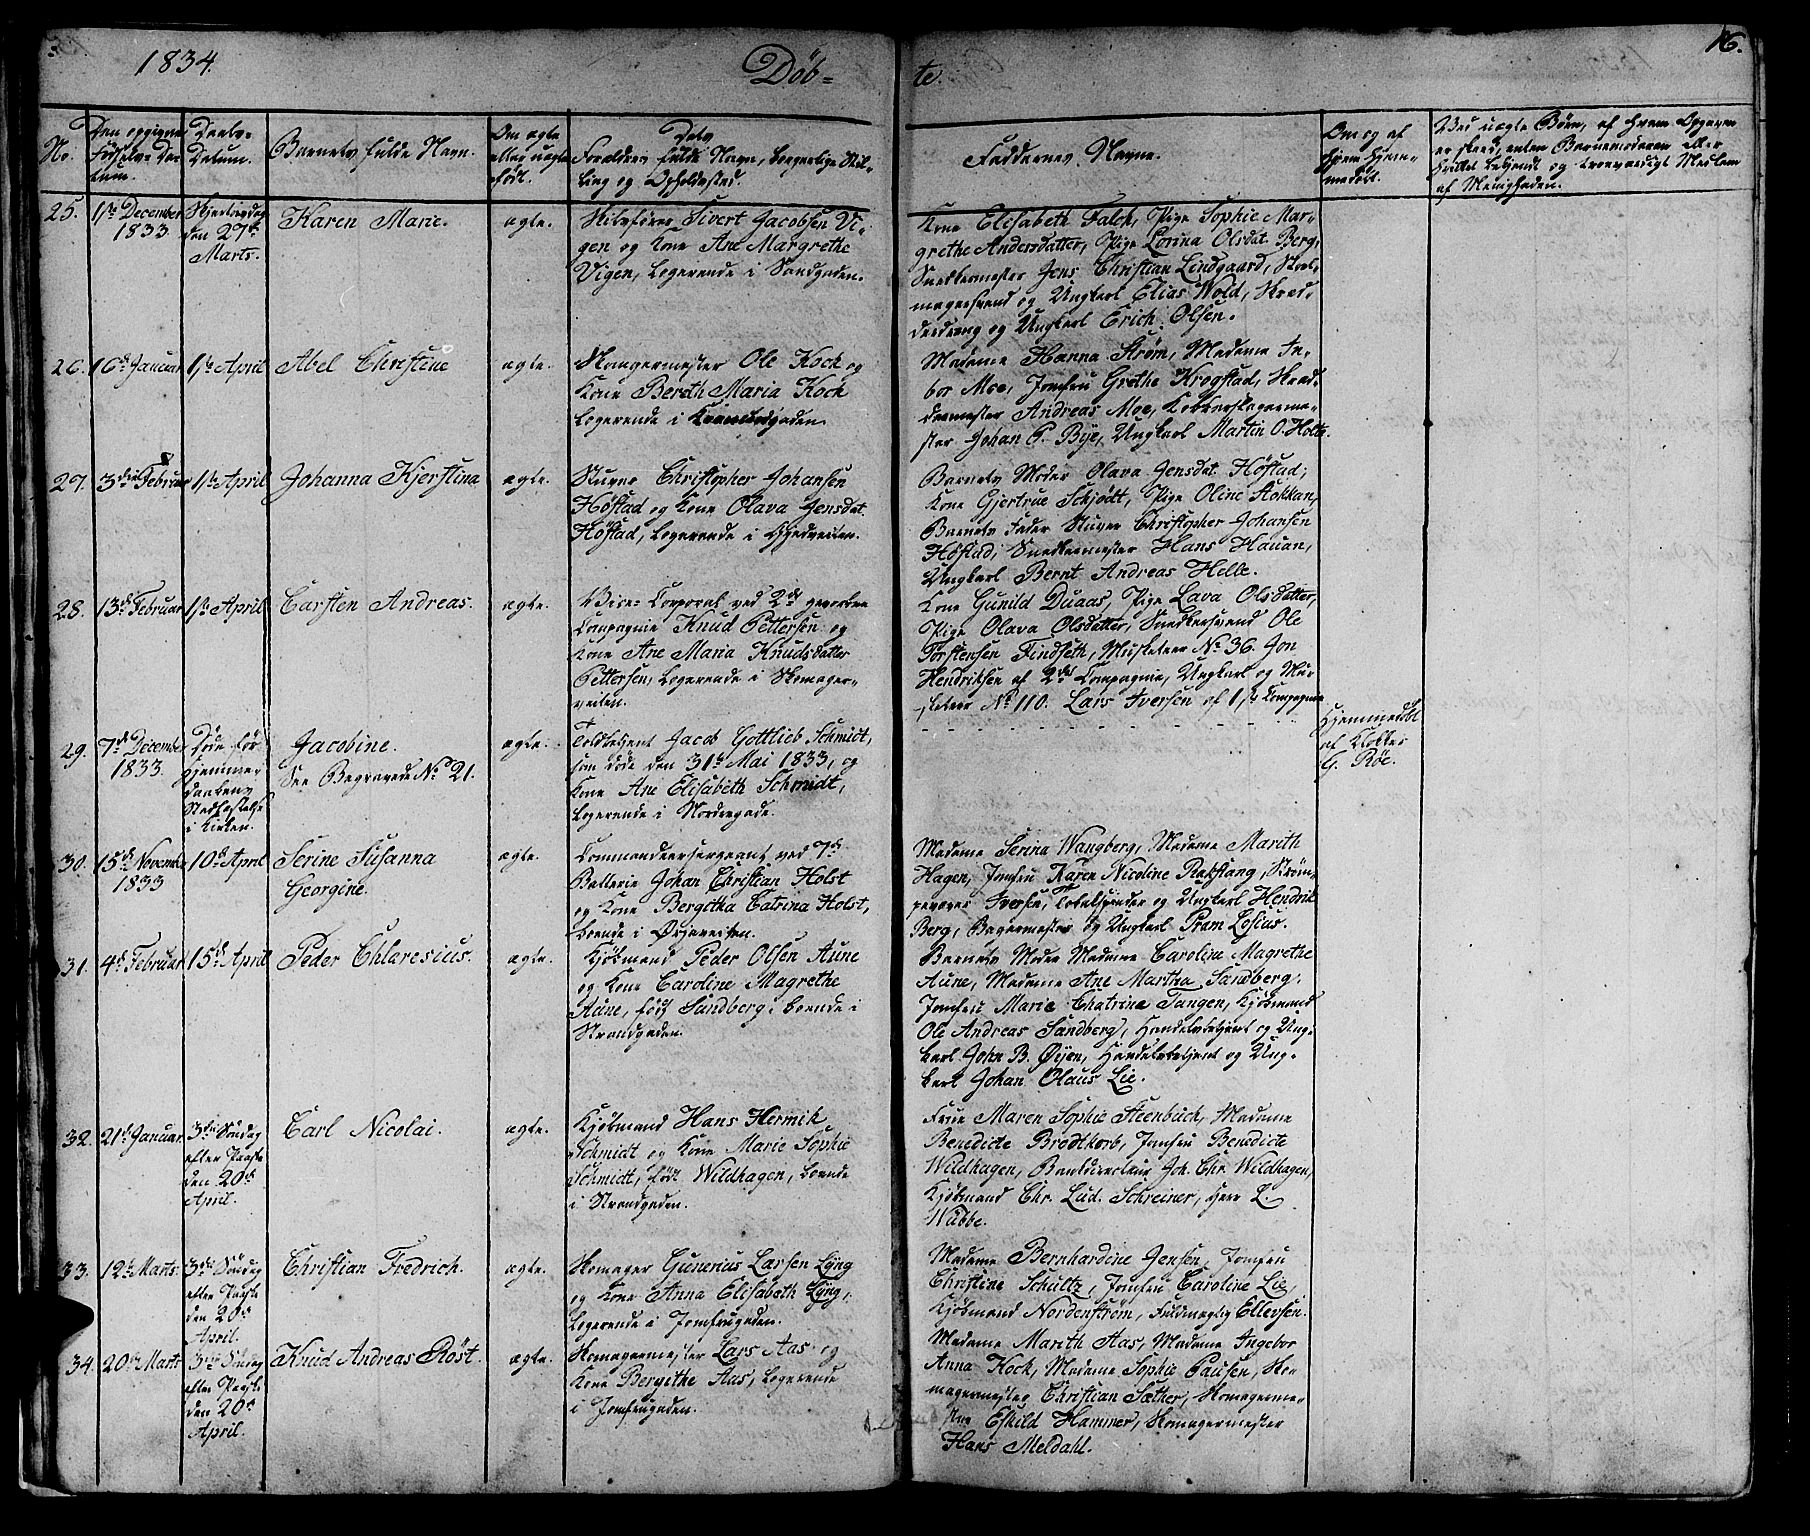 1834.
Döb=
te.
16.
No.
Den opgivne
Fødsels-Da-
tum.
Daabs-
Datum.
Barnets fulde Navn.
Om ægte
eller uægte
født.
Forældres fulde Navn, borgerlige Stil-
ling og Opholdssted.
Faddernes Navne.
Om og af
hvem hjem-
medøbt.
Ved uægte Børn, af hvem Opgaven
er skeed, enten Barnemoderen eller
hvilket bekjendt og troværdigt Medlem
af Menigheden.
25.
1ste December
1833
Skjertorsdag
den 27de
Marts.
Karen Marie.
ægte.
Sivert Jacobsen Vi-
gen og Kone Ane Margrethe
Vigen, logerende i Sandgaden.
Kone Elisabeth Falck, Pige Sophie Mar-
grethe Andersdatter, Pige Lorina Olsdat. Berg,
Snedkermester Jens Christian Lindgaard, Skoe-
magersvend og Ungkarl Elias Wold, Skræd-
derdreng og Ungkarl Erich Olsen.
26.
16de Januar
1ste April
Abel Christine
ægte.
Ole Kock og
Kone Bereth Maria Kock
logerende i gaden
Madame Hanna Strøm, Madame In-
bor Moe, Jomfru Grethe Krogstad, Skræd-
dermester Andreas Moe, Kobberslagerme-
ster Johan P. Bye, Ungkarl Martin O. Holte.
27.
3die Februar
1ste April
Johanna Kjerstina
ægte.
Christopher Johansen
Höstad og Kone Olava Jensdat.
Höstad, logerende i
Barnets Moder Olava Jensdat. Höstad,
Kone Gjertrue Schjödt, Pige Oline Stokkan,
Barnets Fader Christopher Johansen
Höstad, Snedkermester Hans Hauan,
Ungkarl Bernt Andreas Helle.
28.
13de Februar
1ste April
Carsten Andreas.
ægte.
Vice-Corporal ved 2det gevorbne
Compagnie Knud Pettersen og
Kone Ane Maria Knudsdatter
Pettersen, logerende i Skomager-
veiten.
Kone Gunild Duaas, Pige Lava Olsdatter,
Pige Olava Olsdatter, Snedkersvend Ole
Torstensen Findseth, Musketeer No 36. Jon
Hendriksen af 2det Compagnie, Ungkarl og Mu-
sketeer No 110. Lars Iversen af 1ste Compagnie
29.
7de December
1833.
Döde för
Hjemme-
daabens
Stadfæstelse
i Kirken.
Jacobine.
See Begravede No 21.
ægte.
Toldbetjent Jacob Gottlieb Schmidt,
som döde den 31te Mai 1833, og
Kone Ane Elisabeth Schmidt,
logerende i Nordregade.
Hjemmedöbt
af Klokker
G. Röe.
30.
15de November
1833
10de April
Serine Susanna
Georgine.
ægte.
Commandeersergeant ved 7de
Batterie Johan Christian Holst
og Kone Bergitha Catrina Holst,
boende i Örjaveiten.
Madame Serina Wangberg, Madame Mareth
Hagen, Jomfru Karen Nicoline Rakstang,
Iversen, Tobakspinder og Ungkarl Hendrik
Berg, Bagermester og Ungkarl Pram Losius.
31.
4de Februar
15de April
Peder Chlaresius.
ægte.
Kjöbmand Peder Olsen Aune
og Kone Caroline Magrethe
Aune, född Sandberg, boende i
Strandgaden.
Barnets Moder Madame Caroline Magrethe
Aune, Madame Ane Martha Sandberg,
Jomfru Marie Chatrine Tangen, Kjöbmand
Ole Andreas Sandberg, Handelsbetjent og Ung-
karl John B. Øyen, Handelsbetjent og Ung-
karl Johan Olaus Lie.
32.
21de Januar
3die Söndag
efter Paaske
den 20de
April.
Carl Nicolai.
ægte.
Kjöbmand Hans Hernik
Schmidt og Kone Marie Sophie
Schmidt, född Wildhagen, boende
i Strandgaden.
Frue Maren Sophie Steenbuch, Madame
Benedicte Brodtkorb, Jomfru Benedicte
Wildhagen, Bankdirecteur Joh. Chr. Wildhagen,
Kjöbmand Chr. Lud. Schreiner, Herr L.
Wübbe.
33.
12te Marts.
3die Söndag
efter Paaske
den 20de
April.
Christian Fredrich.
ægte.
Skomager Gunerius Larsen Lyng
og Kone Anna Elisabeth Lyng,
logerende i Jomfrugaden.
Madame Bernhardine Jensen, Jomfru
Christine Schultz, Jomfru Caroline Lie,
Kjöbmand Nordenström, Fuldmægtig Ellevsen.
34.
20de Marts
3die Söndag
efter Paaske
den 20de
April.
Knud Andreas Röst.
ægte.
Skomagermester Lars Aas og
Kone Bergithe Aas, logerende
i Jomfrugaden.
Madame Marith Aas, Madame Ingebor
Anna Kock, Madame Sophie Pausen, Sko-
magermester Christian Sæther, Skomagerme-
ster Eskild Hammer, Skomagermester
Hans Meldahl.